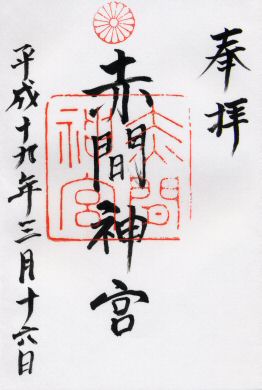 奉拝
赤間神宮
赤間神宮
平成十九年三月十六日